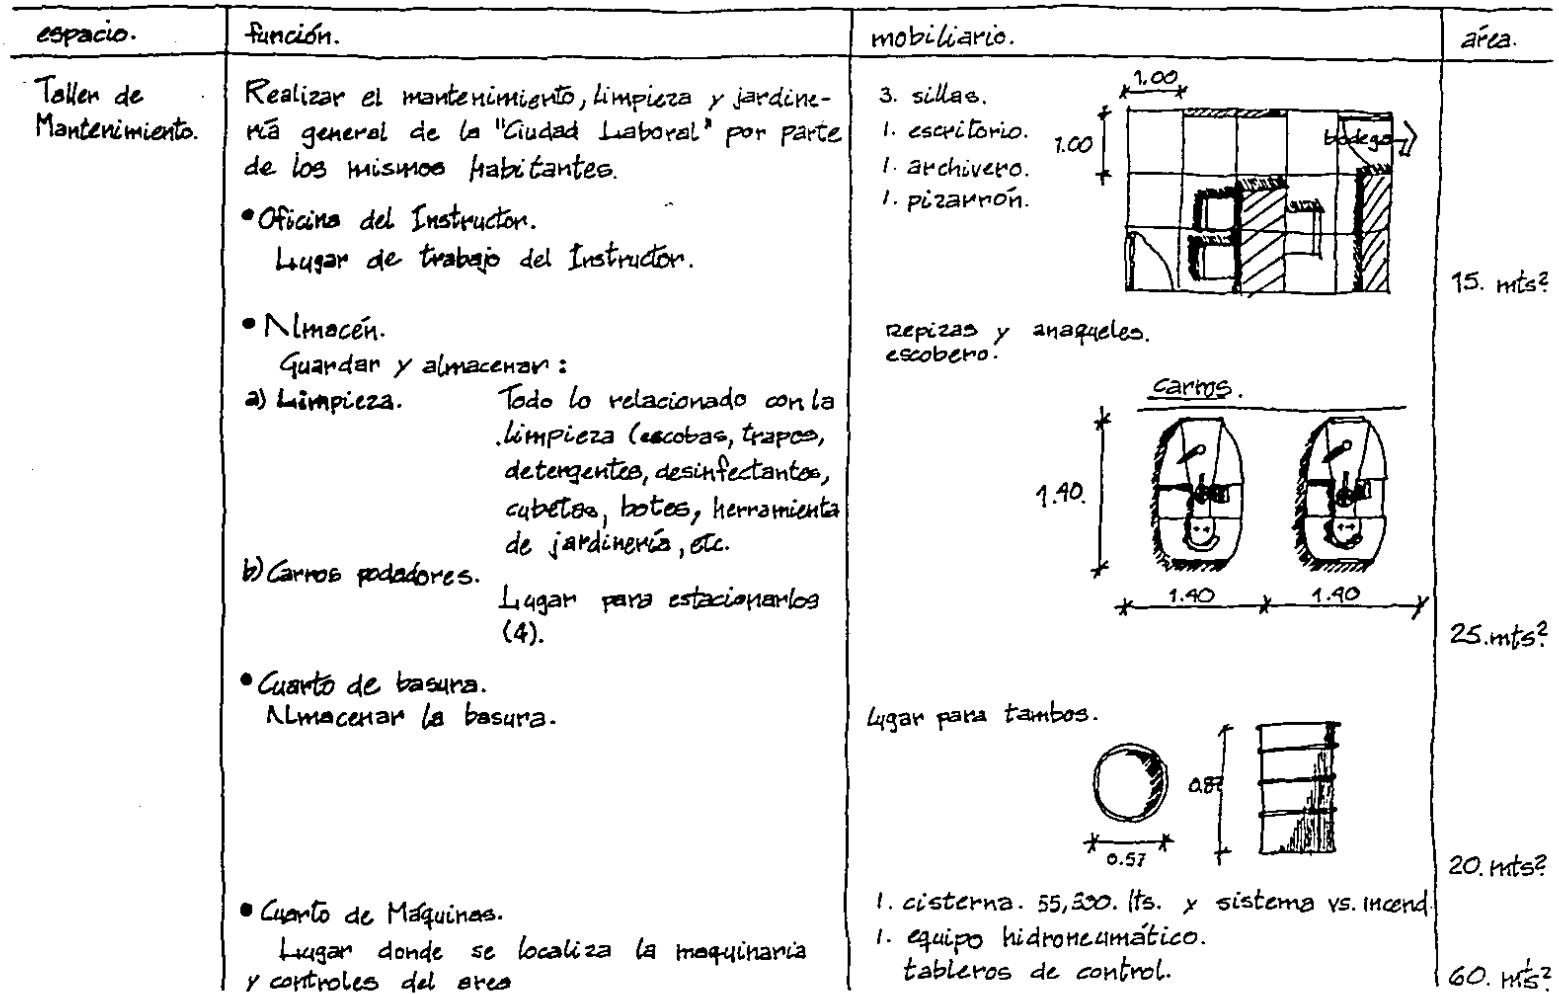 espacio. función. mobiliario. área.
Taller de
Mantenimiento.
Realizar el mantenimiento, limpieza y jardine-
ría general de la "Ciudad Laboral" por parte
de los mismos habitantes.
• Oficina del Instructor.
Lugar de trabajo del Instructor.
3. sillas.
1. escritorio.
1. archivero.
1. pizarrón.
1.00
1.00
bodega
15. mts²
• Almacén.
Guardar y almacenar:
a) Limpieza. Todo lo relacionado con la
limpieza (escobas, trapos,
detergentes, desinfectantes,
cubetas, botes, herramienta
de jardinería, etc.
b) Carros podadores.
Lugar para estacionarlos
(4).
repizas y anaqueles.
escobero.
carros.
1.40.
1.40 1.40
25. mts²
• Cuarto de basura.
Almacenar la basura.
Lugar para tambos.
0.87
0.57
20. mts²
• Cuarto de Máquinas.
Lugar donde se localiza la maquinaria
y controles del area
1. cisterna. lts. y sistema vs. incend
1. equipo hidroneumático.
tableros de control.
60. mts²